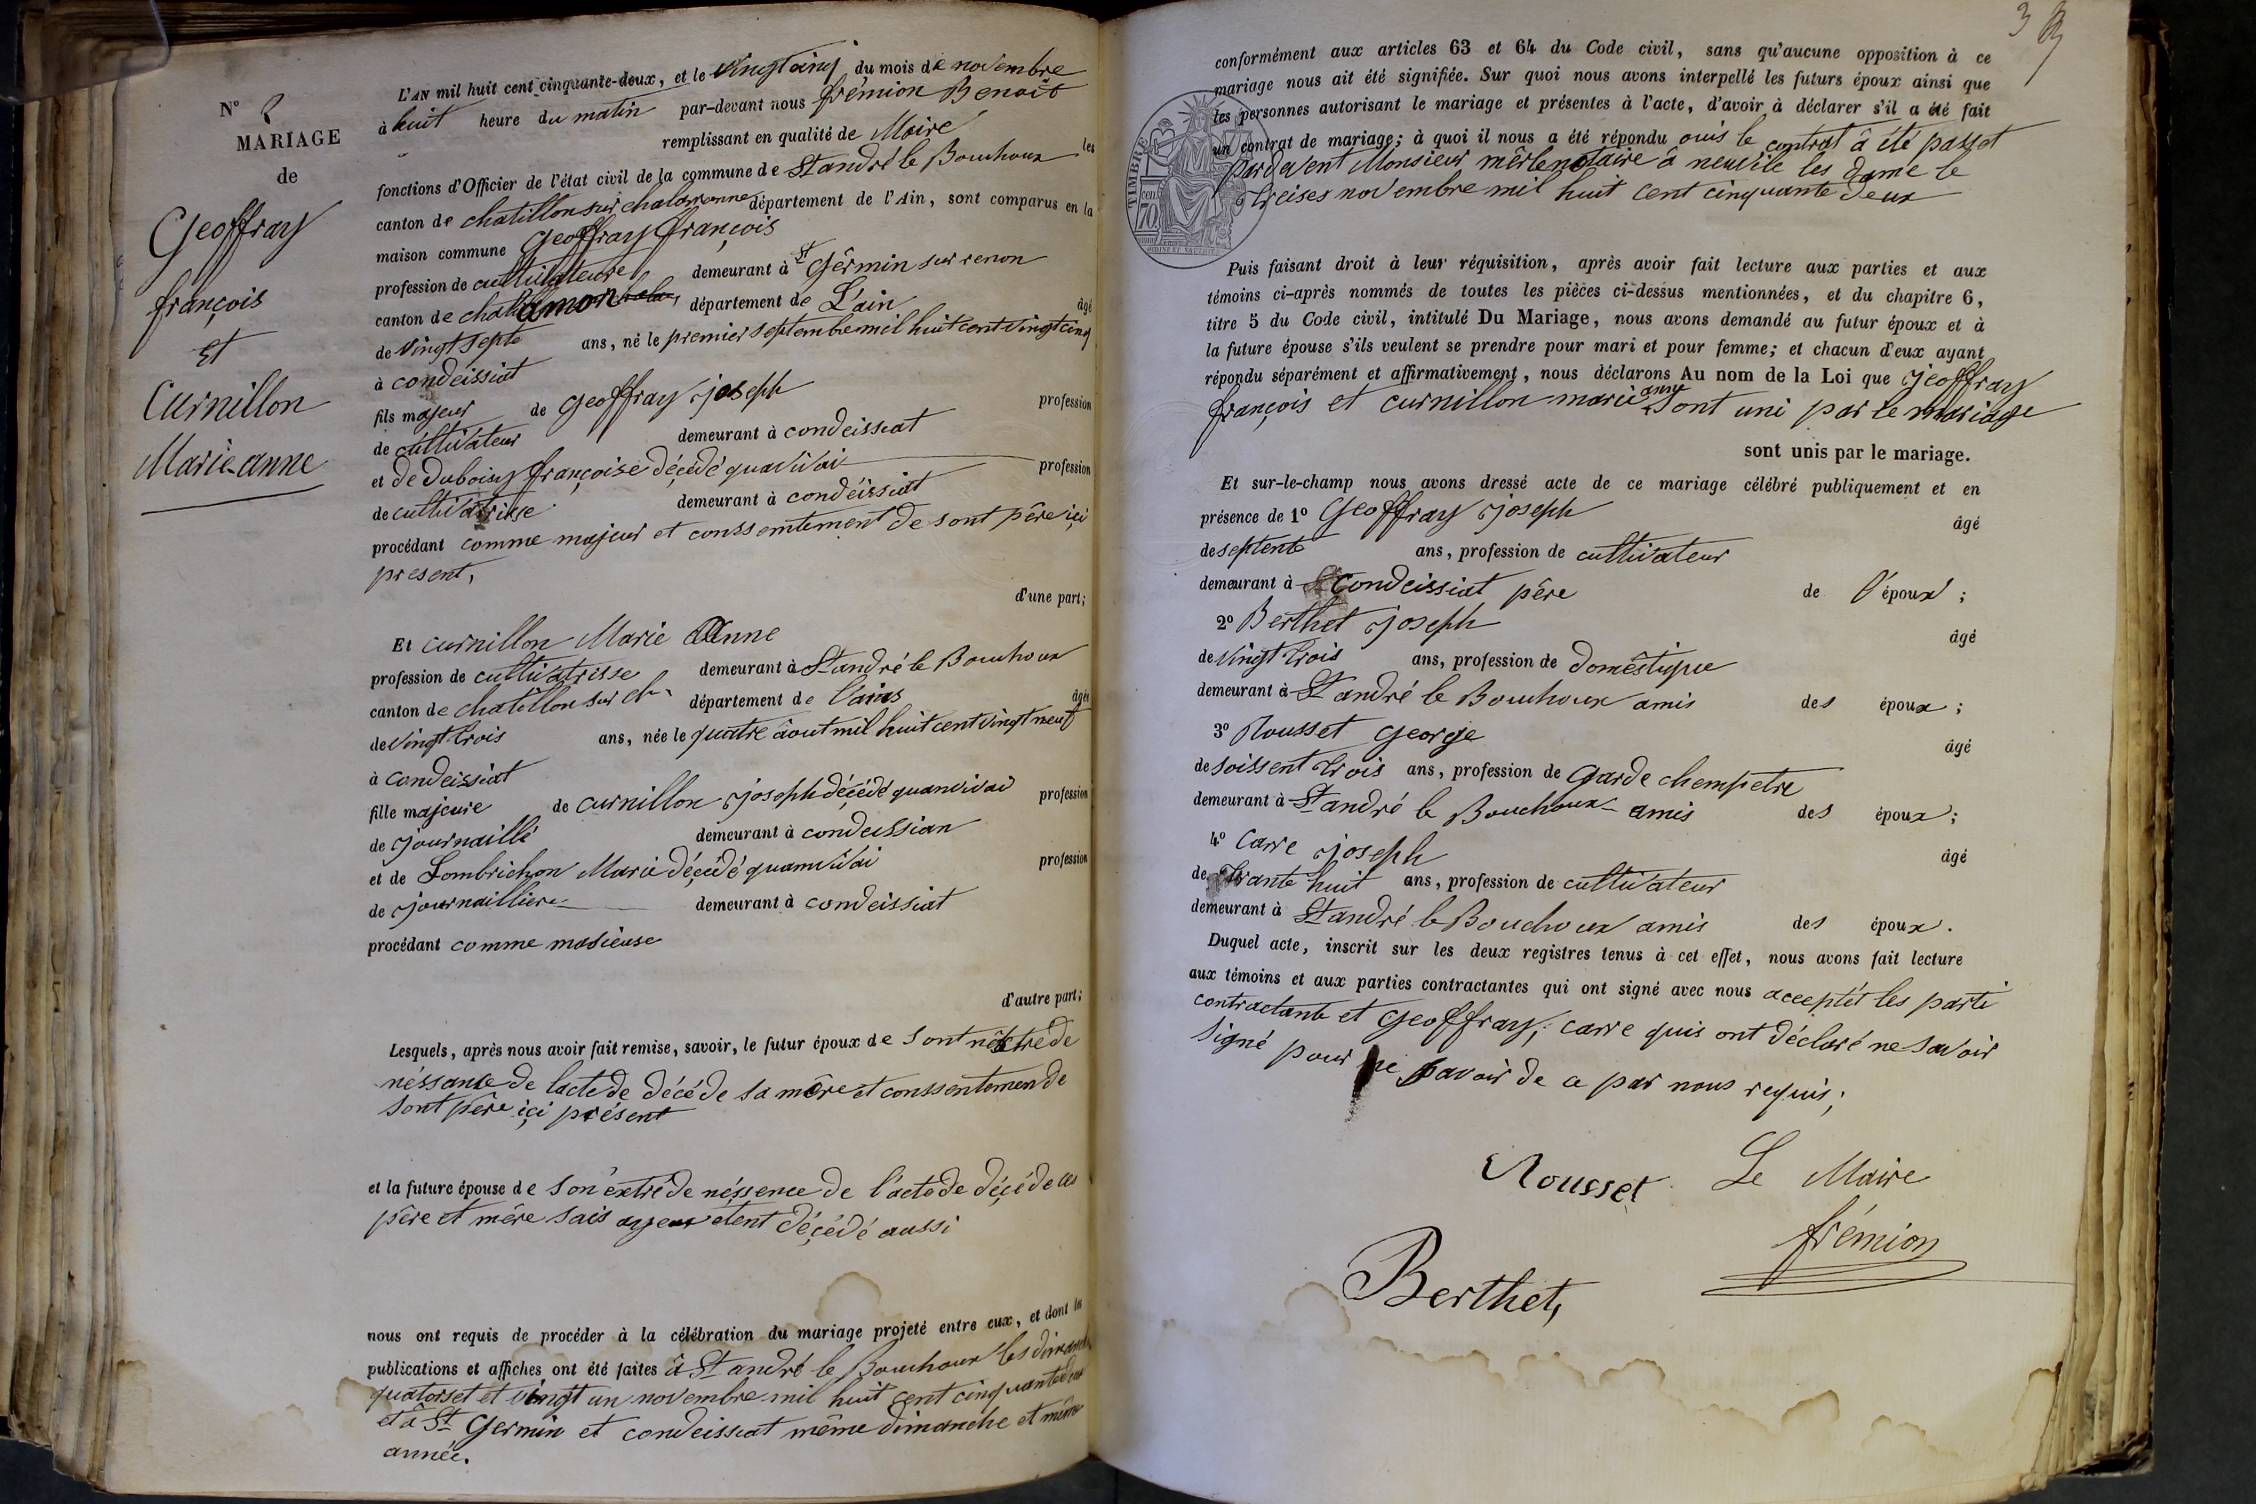 N° 8
MARIAGE
de
Geoffray
françois
Et
Curnillon
Marie anne
L'AN mil huit cent cinquante-deux, et le vingt cinq du mois de novembre
à huit heure du matin par-devant nous frémion Benoit
remplissant en qualité de Maire les
fonctions d'Officier de l'état civil de la commune de St andré le Bouchoux
canton de chatillon sur chalaronne département de l'Ain, sont comparus en la
maison commune Geoffray françois
profession de cultivateure demeurant à St Gêrmin sur renon
canton de chalamon département de L'ain âgé
de vingt septe ans, né le premier septembe mil huit cent vingt cinq
à condeissiat
fils majeur de Geoffray joseph profession
de cultivateur demeurant à condeissiat
et de Duboisy françoise décédé quavivai profession
de cultivatrisse demeurant à condéissiat
procédant comme majeur et conssentement de sont père içi
present,
d'une part;
Et curnillon Marie Anne
profession de cultivatrisse demeurant à St andré le Bouchoux
canton de chatillon sur ch département de l'ains âgée
de vingt trois ans, née le quatre août mil huit cent vingt neuf
à condeissiat
fille majeure de curnillon joseph décédé quanvivai profession
de journaillé demeurant à condeissian
et de Lombrichon Marie décédé quanvivai profession
de journailliere demeurant à condeissiat
procédant comme masieuse
d'autre part;
Lesquels, après nous avoir fait remise, savoir, le futur époux de sont de
néssanse de lacte de décé de sa mère et conssentemen de
sont père içi présent
et la future épouse de son extré de néssence de l'acte de décé de ces
père et mère sais ayeux etent décédé aussi
nous ont requis de procéder à la célébration du mariage projeté entre eux, et dont les
publications et affiches ont été faites à St andré le Bouchoux les dimanche
quatorset et vingt un novembre mil huit cent cinquante deux
et à St Germin et condeissiat même dimanche et même
année.
conformément aux articles 63 et 64 du Code civil, sans qu'aucune opposition à ce
mariage nous ait été signifiée. Sur quoi nous avons interpellé les futurs époux ainsi que
les personnes autorisant le mariage et présentes à l'acte, d'avoir à déclarer s'il a été fait
un contrat de mariage; à quoi il nous a été répondu ouis le contrat à été passet
pardevent Monsieur mêrle notaire à neuvile les dame le
treises novembre mil huit cent cinquante deux
TIMBRE
70
Puis faisant droit à leur réquisition, après avoir fait lecture aux parties et aux
témoins ci-après nommés de toutes les pièces ci-dessus mentionnées, et du chapitre 6,
titre 5 du Code civil, intitulé Du Mariage, nous avons demandé au futur époux et à
la future épouse s'ils veulent se prendre pour mari et pour femme; et chacun d'eux ayant
répondu séparément et affirmativement, nous déclarons Au nom de la Loi que jeoffray
françois et curnillon marie anne sont uni par le mariage
sont unis par le mariage.
Et sur-le-champ nous avons dressé acte de ce mariage célébré publiquement et en
présence de 1° Geoffray joseph âgé
de septente ans, profession de cultivateur
demeurant à condeissiat père de l'époux ;
2° Berthet joseph âgé
de vingt trois ans, profession de domêstique
demeurant à St andré le Bouchoux amis des époux ;
3° Rousset George âgé
de soissent trois ans, profession de Garde chempetre
demeurant à St andré le Bouchoux amis des époux ;
4° Carre joseph âgé
de trante huit ans, profession de cultivateur
demeurant à St andré le Bouchoux amis des époux.
Duquel acte, inscrit sur les deux registres tenus à cet effet, nous avons fait lecture
aux témoins et aux parties contractantes qui ont signé avec nous aceeptét les parti
contractante et Geoffray, carre quis ont déclaré ne savoir
signé pour ne savoir de ce par nous requis;
Rousset Le Maire
frémion
Berthet,